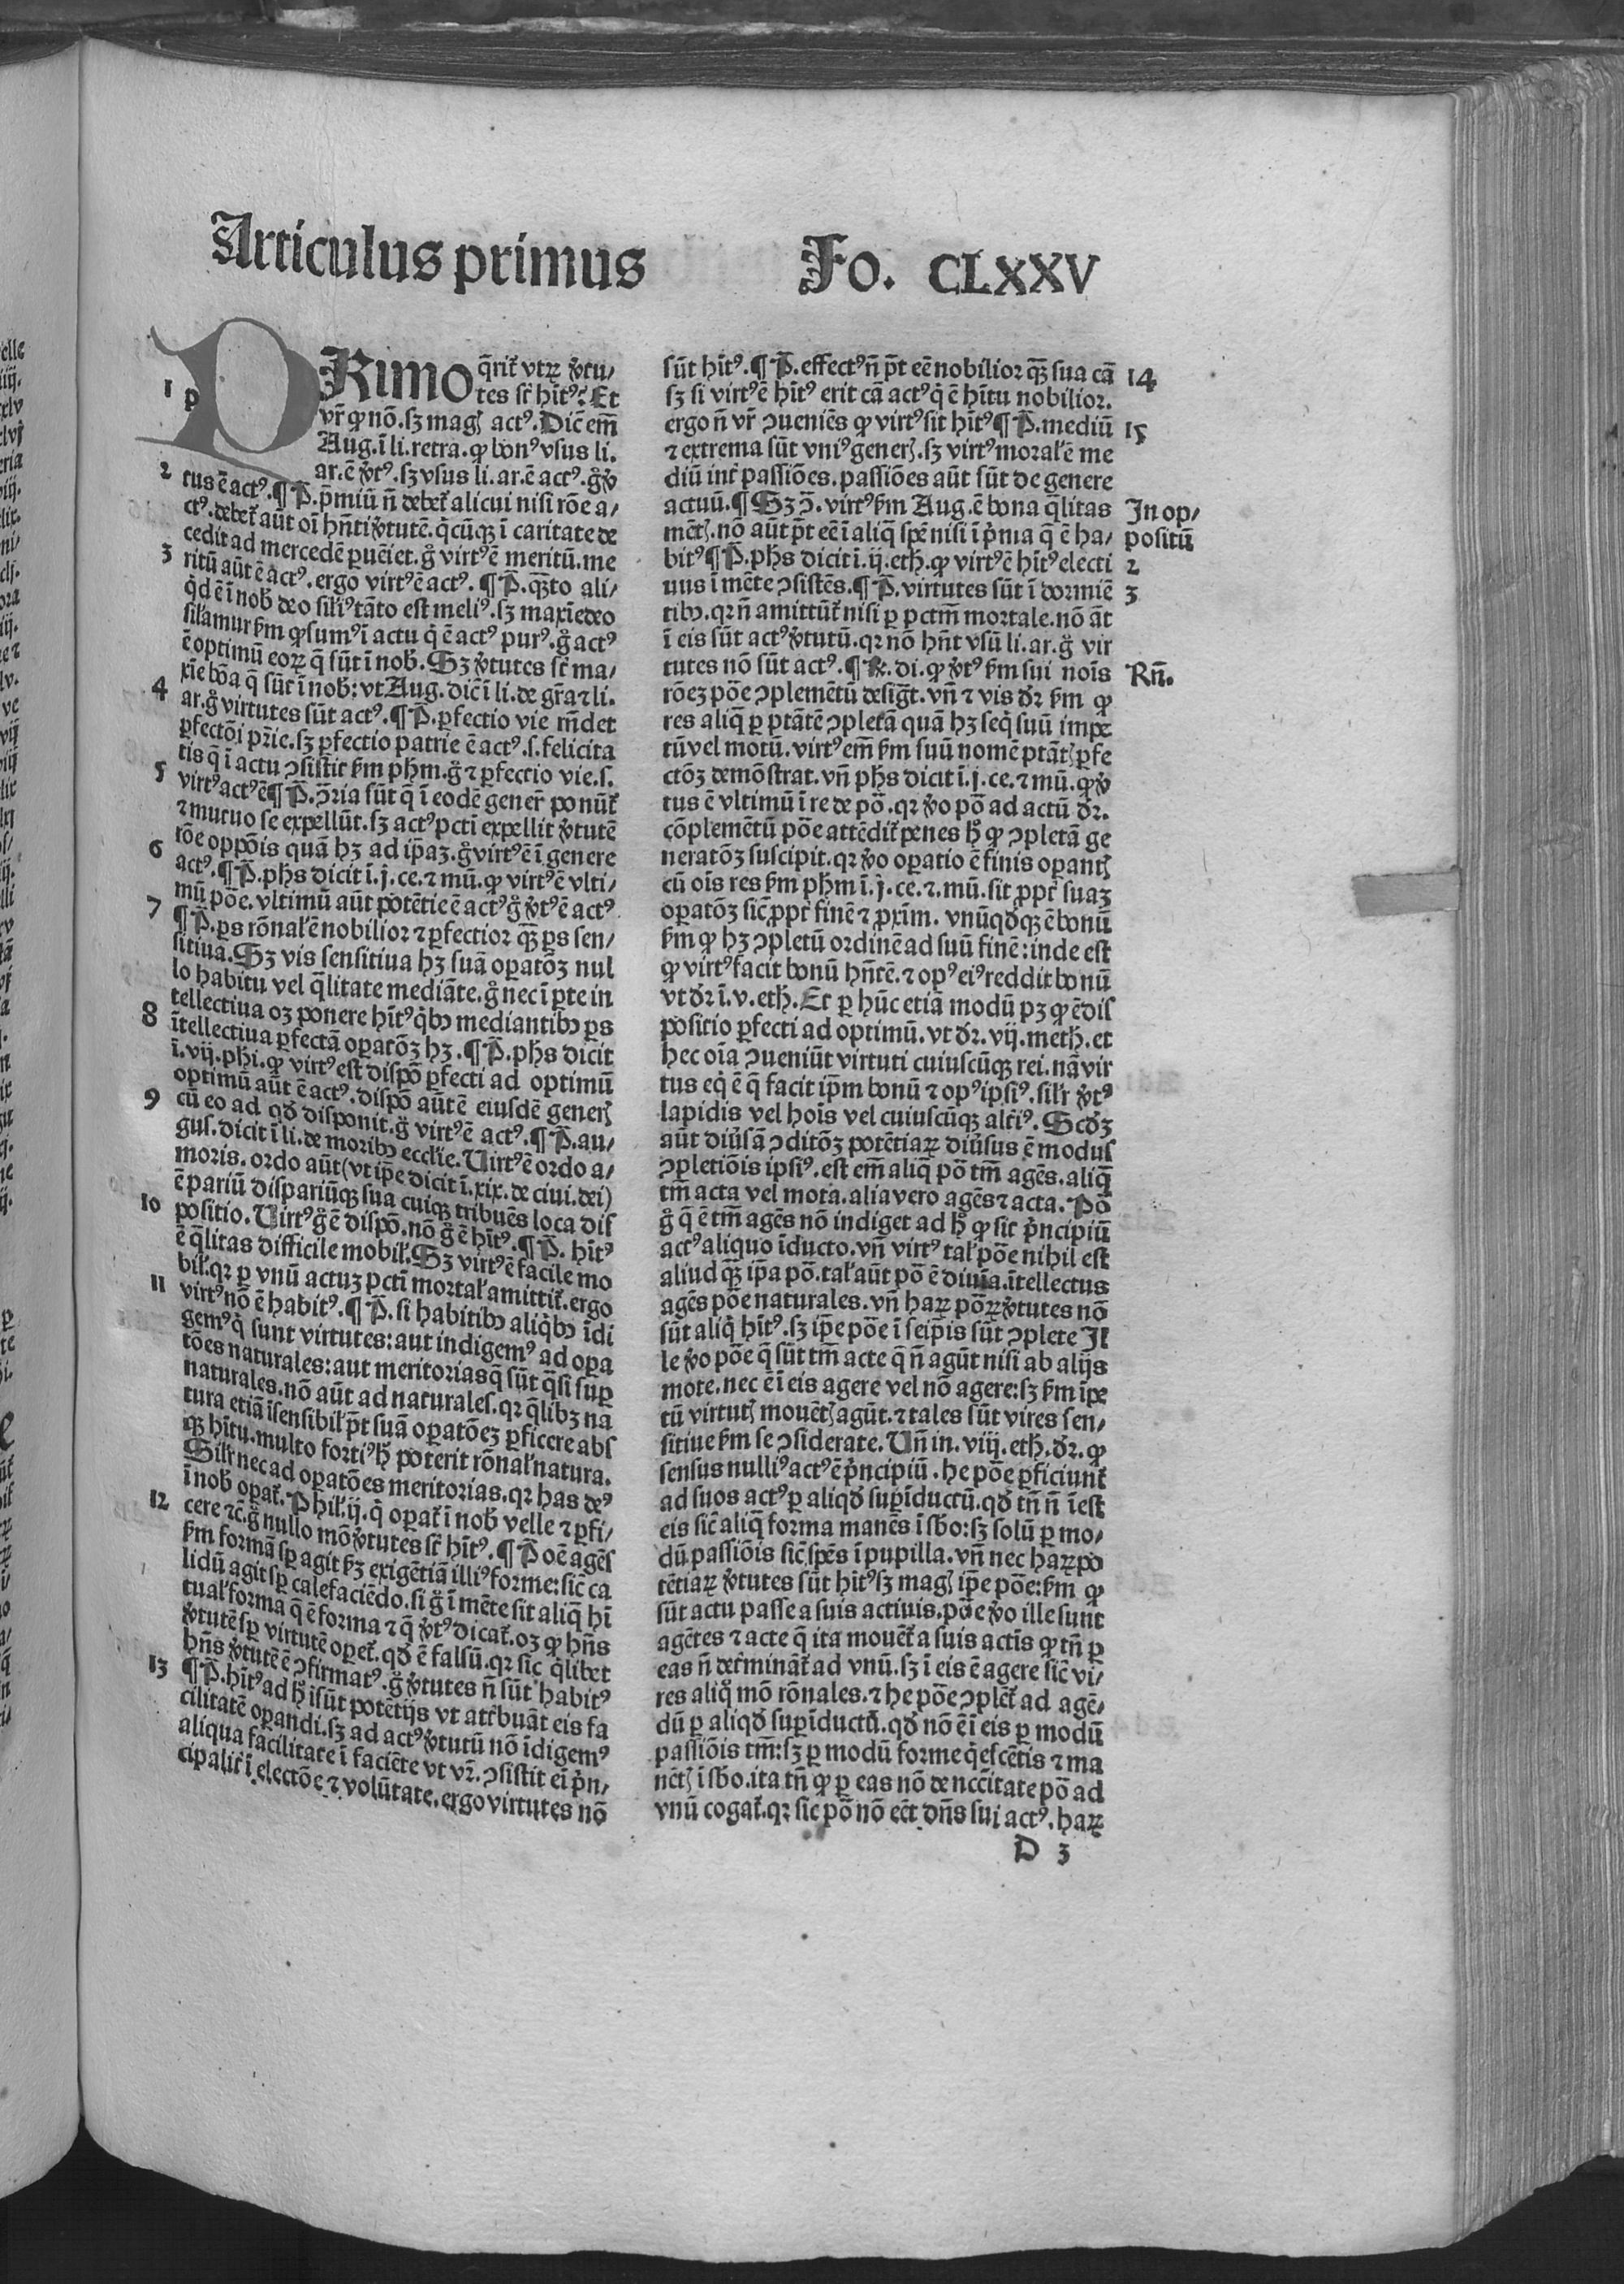 Articulus primus
Fo. CLXXV
PRimo q̄rit᷑ vtꝝ v̓tu/
1 p tes st̄ hītꝰ? Et
vr̄ ꝙ nō. sꝫ magꝭ actꝰ. Dic̄ em̄
Aug. ī li. retra. ꝙ bonꝰ vsus li.
ar. ē v̓tꝰ. sꝫ vsus li. ar. ē actꝰ. g̊ v̓
2 tus ē actꝰ. ¶ P̄. p̄miū n̄ debet᷑ alicui nisi rōe a/
ctꝰ. debet᷑ aūt oī hn̄ti v̓tutē. q̄cūqꝫ ī caritate de
cedit ad mercedē ꝑuēiet. g̊ virtꝰ ē meritū. me
3 ritū aūt ē actꝰ. ergo virtꝰ ē actꝰ. ¶ P̄. q̄ꝫto ali/
q̇d ē ī nob̓ deo sil̓iꝰ tāto est meliꝰ. sꝫ maxīe deo
sil̓amur ẜm ꝙ sumꝰ ī actu q̇ ē actꝰ purꝰ. g̊ actꝰ
ē optimū eoꝝ q̄ sūt ī nob̓. Sꝫ v̓tutes st̄ ma/
xīe bōa q̄ sūt ī nob̓: vt Aug. dic̄ ī li. de gr̄a ⁊ li.
4 ar. g̊ virtutes sūt actꝰ. ¶ P̄. ꝑfectio vie rn̄det
ꝑfectōi pr̄ie. sꝫ ꝑfectio patrie ē actꝰ. s. felicita
tis q̄ ī actu ꝯsistit ẜm phm̄. g̊ ⁊ ꝑfectio vie. s.
5 virtꝰ actꝰ ē ¶ P̄. ꝯ̄ria sūt q̄ ī eodē gener̄ ponūt᷑
⁊ mutuo se expellūt. sꝫ actꝰ pctī expellit v̓tutē
rōe oppōis quā hꝫ ad ip̄aꝫ. g̊ virtꝰ ē ī genere
6 actꝰ. ¶ P̄. phs dicit ī. j. ce. ⁊ mū. ꝙ virtꝰ ē vlti/
mū pōe. vltimū aūt potētie ē actꝰ g̊ v̓tꝰ ē actꝰ
7 ¶ P̄. ꝑs rōnal̓ ē nobilior ⁊ ꝑfectior q̄ꝫ ꝑs sen/
sitiua. Sꝫ vis sensitiua hꝫ suā oꝑatōꝫ nul
lo habitu vel q̄litate mediāte. g̊ nec ī ꝑte in
tellectiua oꝫ ponere hītꝰ q̇bꝰ mediantibꝰ ꝑs
8 ītellectiua ꝑfectā oꝑatōꝫ hꝫ. ¶ P̄. phs dicit
ī. vij. phi. ꝙ virtꝰ est dispō ꝑfecti ad optimū
optimū aūt ē actꝰ. dispō aūt ē eiusdē generꝭ
9 cū eo ad qd̓ disponit. g̊ virtꝰ ē actꝰ. ¶ P̄. au/
gus. dicit ī li. de moribꝰ eccl̓ie. Uirtꝰ ē ordo a/
moris. ordo aūt (vt ip̄e dicit ī. xix. de ciui. dei)
ē pariū dispariūqꝫ sua cuiqꝫ tribuēs loca dis
10 positio. Uirtꝰ g̊ ē dispō. nō g̊ ē hītꝰ. ¶ P̄. hītꝰ
ē q̄litas difficile mobil̓. Sꝫ virtꝰ ē facile mo
bil̓. qꝛ ꝑ vnū actuꝫ pctī mortal̓ amittit᷑. ergo
11 virtꝰ nō ē habitꝰ. ¶ P̄. si habitibꝰ aliq̇bꝰ īdi
gemꝰ q̇ sunt virtutes: aut indigemꝰ ad oꝑa
tōes naturales: aut meritorias q̄ sūt q̄si suꝑ
naturales. nō aūt ad naturales. qꝛ q̄libꝫ na
tura etiā īsensibil̓ p̄t suā oꝑatōeꝫ ꝑficere abs
qꝫ hītu. multo fortiꝰ h̓ poterit rōnal̓ natura.
Sil̓r nec ad oꝑatōes meritorias. qꝛ has deꝰ
ī nob̓ oꝑat᷑. Phil̓. ij. q̇ oꝑat᷑ ī nob̓ velle ⁊ ꝑfi/
12 cere ⁊c̄. g̊ nullo mō v̓tutes st̄ hītꝰ. ¶ P̄ oē agēs
ẜm formā sꝑ agit ẜꝫ exigētiā illiꝰ forme: sic̄ ca
lidū agit sꝑ calefaciēdo. si g̊ ī mēte sit aliq̄ hī
tual̓ forma q̄ ē forma ⁊ q̄ v̓tꝰ dicat᷑. oꝫ ꝙ hn̄s
v̓tutē sꝑ virtutē oꝑet᷑. qd̓ ē falsū. qꝛ sic q̇libet
hn̄s v̓tutē ē ꝯfirmatꝰ. g̊ v̓tutes n̄ sūt habitꝰ
13 ¶ P̄. hītꝰ ad h̓ īsūt potētijs vt atr̓buāt eis fa
cilitatē oꝑandi. sꝫ ad actꝰ v̓tutū nō īdigemꝰ
aliqua facilitate ī faciēte vt vr̄. ꝯsistit ei p̓n/
cipalit̓ ī electōe ⁊ volūtate. ergo virtutes nō
sūt hītꝰ. ¶ P̄. effectꝰ n̄ p̄t eē nobilior q̄ꝫ sua cā 14
sꝫ si virtꝰ ē hītꝰ erit cā actꝰ q̇ ē hītu nobilior.
ergo n̄ vr̄ ꝯueniēs ꝙ virtꝰ sit hītꝰ ¶ P̄. mediū 15
⁊ extrema sūt vniꝰ generꝭ. sꝫ virtꝰ moral̓ ē me
diū int̓ passiōes. passiōes aūt sūt de genere
actuū. ¶ Sꝫ ꝯ̄. virtꝰ ẜm Aug. ē bona q̄litas In op/
mētꝭ. nō aūt p̄t eē ī aliq̄ spē nisi ī p̓ma q̄ ē ha/ positū
bitꝰ ¶ P̄. phs dicit ī. ij. eth. ꝙ virtꝰ ē hītꝰ electi 2
uus ī mēte ꝯsistēs. ¶ P̄. virtutes sūt ī dormiē 3
tibꝰ. qꝛ n̄ amittūt᷑ nisi ꝑ pctm̄ mortale. nō āt
ī eis sūt actꝰ v̓tutū. qꝛ nō hn̄t vsū li. ar. g̊ vir
tutes nō sūt actꝰ. ¶ ℞. di. ꝙ v̓tꝰ ẜm sui noīs Rn̄.
rōeꝫ pōe ꝯplemētū desiḡt. vn̄ ⁊ vis dr̄ ẜm ꝙ
res aliq̄ ꝑ ptātē ꝯpletā quā hꝫ seq̇ suū impe
tū vel motū. virtꝰ em̄ ẜm suū nomē ptātꝭ ꝑfe
ctōꝫ demōstrat. vn̄ phs dicit ī. j. ce. ⁊ mū. ꝙ v̓
tus ē vltimū ī re de pō. qꝛ v̓o pō ad actū dr̄.
cōplemētū pōe attēdit᷑ penes h̓ ꝙ ꝯpletā ge
neratōꝫ suscipit. qꝛ v̓o oꝑatio ē finis oꝑantꝭ
cū oīs res ẜm phm̄ ī. j. ce. ⁊. mū. sit ꝓpt̓ suaꝫ
oꝑatōꝫ sic̄ ꝓpt̓ finē ⁊ ꝓxīm. vnūqd̓qꝫ ē bonū
ẜm ꝙ hꝫ ꝯpletū ordinē ad suū finē: inde est
ꝙ virtꝰ facit bonū hn̄tē. ⁊ opꝰ eiꝰ reddit bonū
vt dr̄ ī. v. eth. Et ꝑ hūc etiā modū pꝫ ꝙ ē dis
positio ꝑfecti ad optimū. vt dr̄. vij. meth. et
hec oīa ꝯueniūt virtuti cuiuscūqꝫ rei. nā vir
tus eq̇ ē q̄ facit ip̄m bonū ⁊ opꝰ ipsiꝰ. sil̓r v̓tꝰ
lapidis vel hoīs vel cuiuscūqꝫ alt̓iꝰ. Scd̓ꝫ
aūt diūsā ꝯditōꝫ potētiaꝝ diūsus ē modus
ꝯpletiōis ipsiꝰ. est em̄ aliq̄ pō tm̄ agēs. aliq̄
tm̄ acta vel mota. alia vero agēs ⁊ acta. Pō
g̊ q̄ ē tm̄ agēs nō indiget ad h̓ ꝙ sit p̓ncipiū
actꝰ aliquo īducto. vn̄ virtꝰ tal̓ pōe nihil est
aliud q̄ꝫ ip̄a pō. tal̓ aūt pō ē diuīa. ītellectus
agēs pōe naturales. vn̄ haꝝ pōꝝ v̓tutes nō
sūt aliq̇ hītꝰ. sꝫ ip̄e pōe ī seip̄is sūt ꝯplete Il
le v̓o pōe q̄ sūt tm̄ acte q̄ n̄ agūt nisi ab alijs
mote. nec ē ī eis agere vel nō agere: sꝫ ẜm īpe
tū virtutꝭ mouētꝭ agūt. ⁊ tales sūt vires sen/
sitiue ẜm se ꝯsiderate. Un̄ in. viij. eth. dr̄. ꝙ
sensus nulliꝰ actꝰ ē p̓ncipiū. he pōe ꝑficiunt᷑
ad suos actꝰ ꝑ aliqd̓ suꝑīductū. qd̓ tn̄ n̄ īest
eis sic̄ aliq̄ forma manēs ī sb̓o: sꝫ solū ꝑ mo/
dū passiōis sic̄ spēs ī pupilla. vn̄ nec haꝝ po
tētiaꝝ v̓tutes sūt hītꝰ sꝫ magꝭ ip̄e pōe: ẜm ꝙ
sūt actu passe a suis actiuis. pōe v̓o ille sunt
agētes ⁊ acte q̄ ita mouēt᷑ a suis actīs ꝙ tn̄ ꝑ
eas n̄ det̓mināt᷑ ad vnū. sꝫ ī eis ē agere sic̄ vi/
res aliq̊ mō rōnales. ⁊ he pōe ꝯplēt᷑ ad agē/
dū ꝑ aliqd̓ suꝑīductū. qd̓ nō ē ī eis ꝑ modū
passiōis tm̄: sꝫ ꝑ modū forme q̇escētis ⁊ ma
nētꝭ ī sb̓o. ita tn̄ ꝙ ꝑ eas nō de nccītate pō ad
vnū cogat᷑. qꝛ sic pō nō eēt dn̄s sui actꝰ. haꝝ
D 3